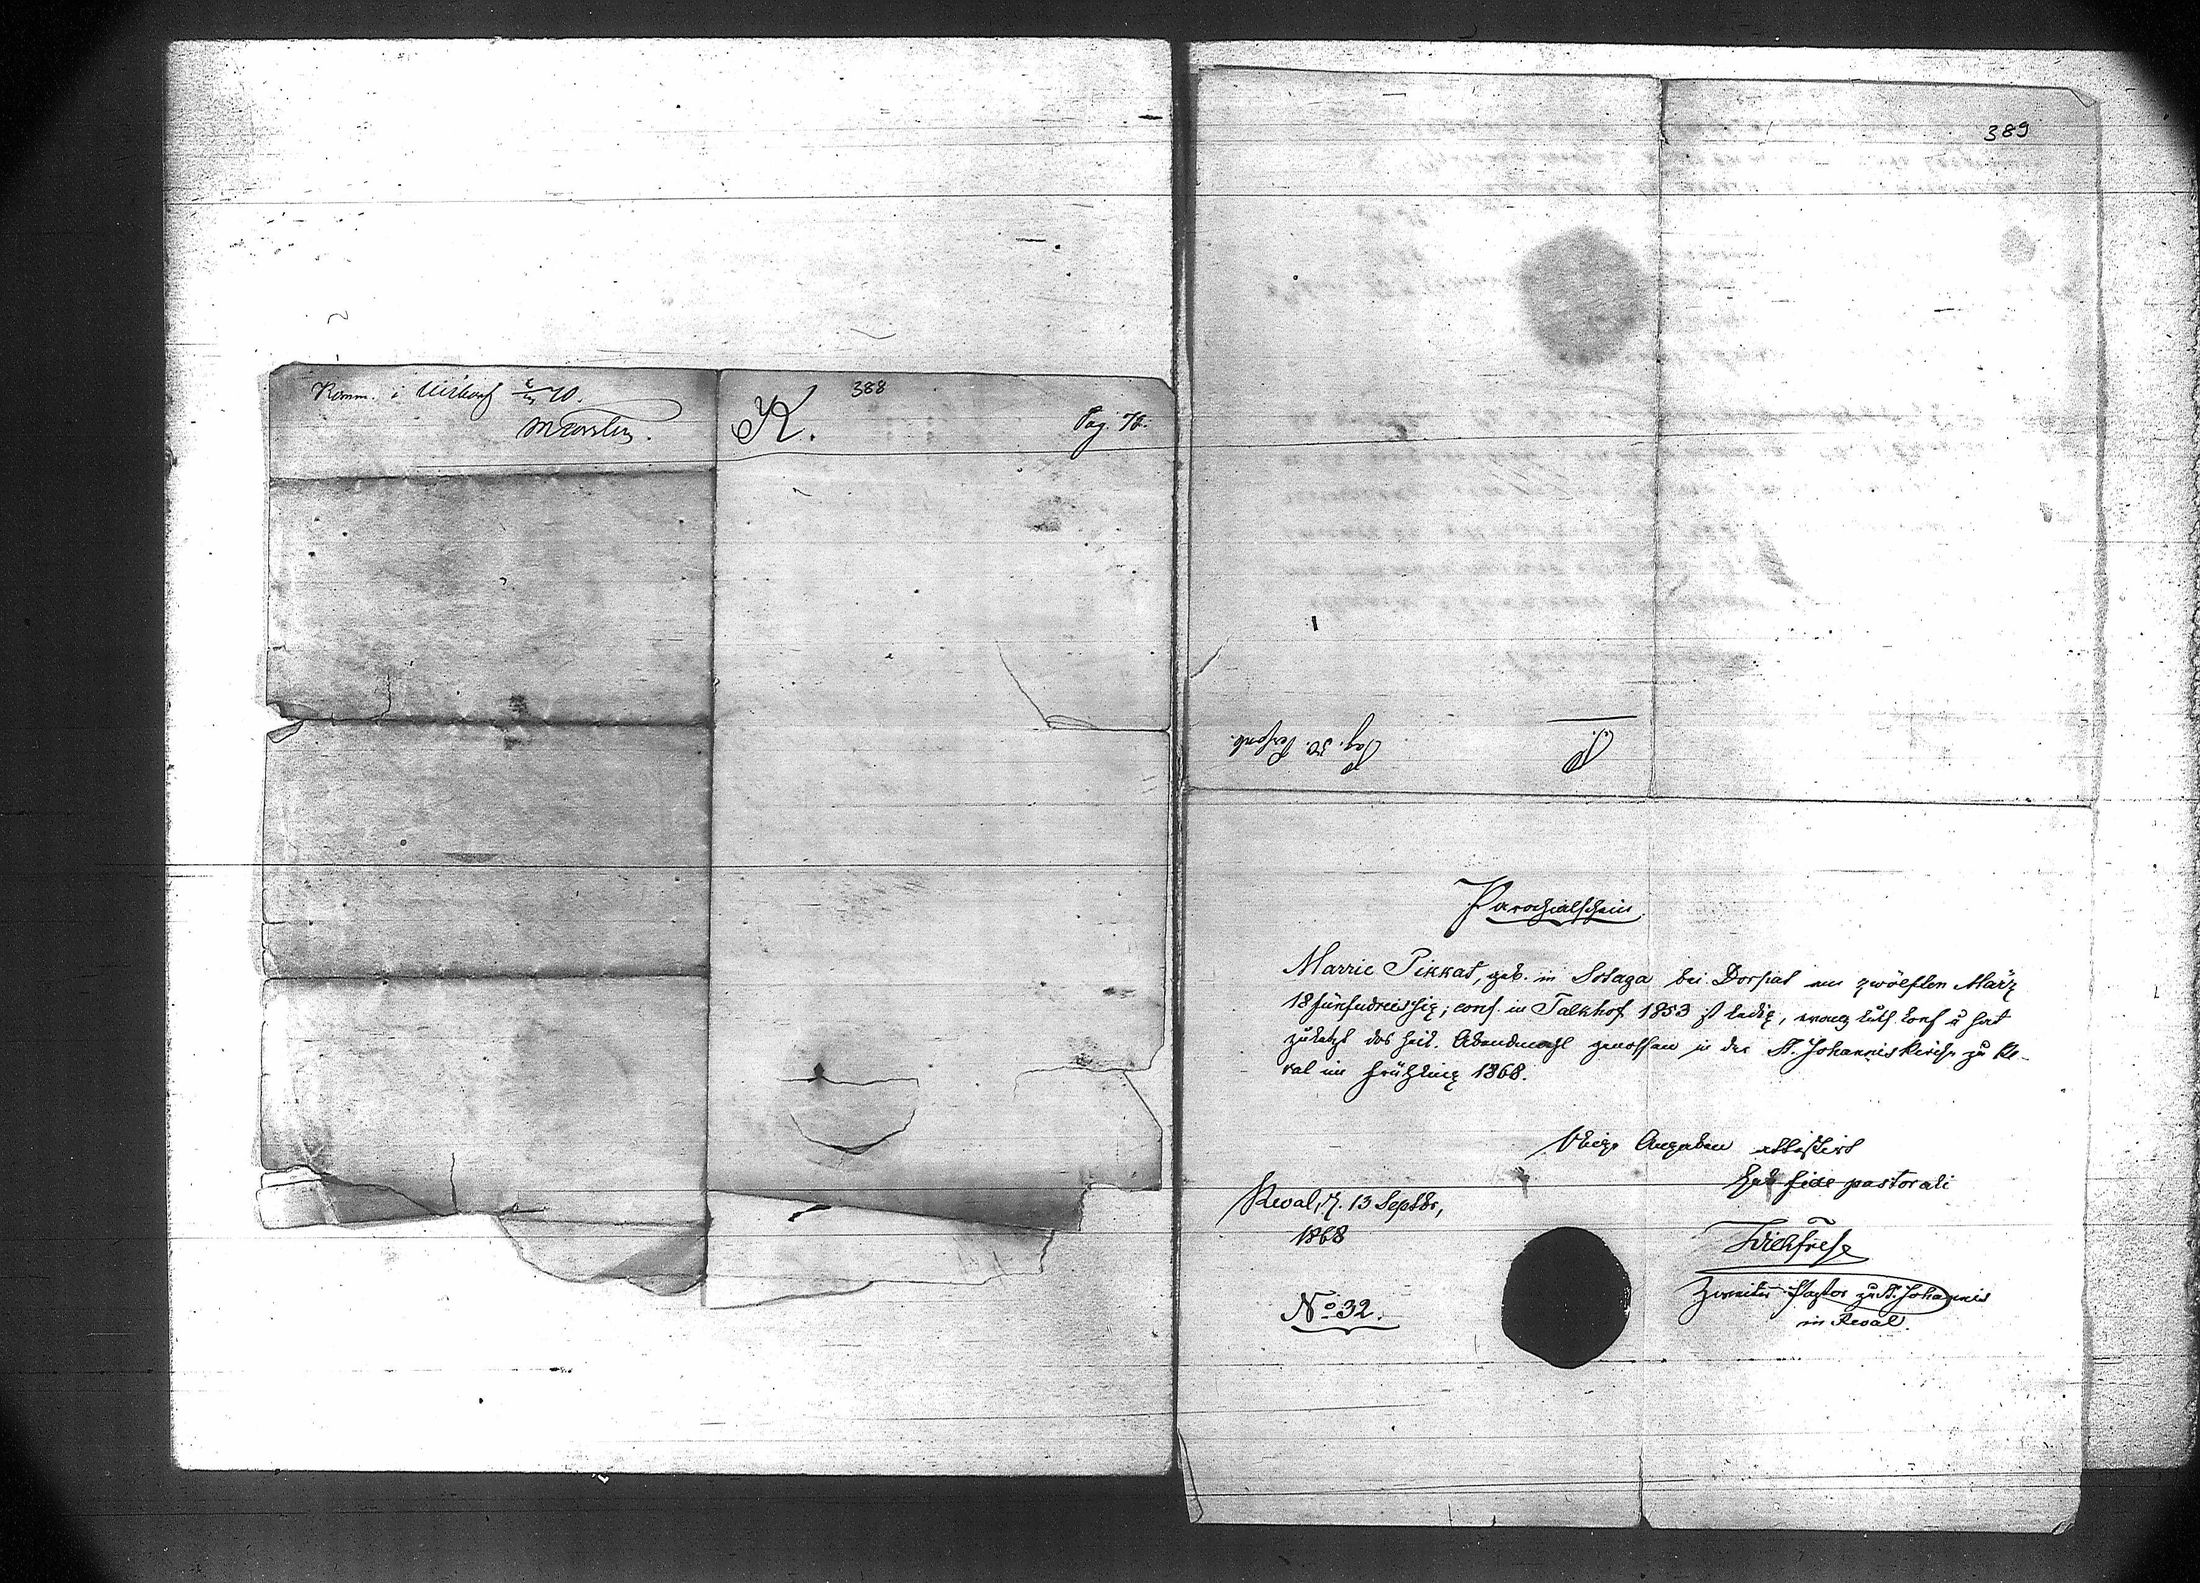 388
Komm. i Wiborg 70.
K.
Pag. 72.
389
Pag. 50.
P.
Parochialschein.
Marrie Pikkat, geb. in Sotaga bei Dorpat am zwölften März
18fünfundreissig; conf. in Talkhof 1853 ist ledig, evang. luth. Conf u hat
zuletzt das heil. Abendmahl genossen in der St. Johanniskirche zu Re-
val im Frühling 1868.
Obige Angaben attestirt
sub fide pastorali
Reval, d. 13 Septbr,
1868
No 32.
Zweiter Pastor zu St. Johannis
in Reval.